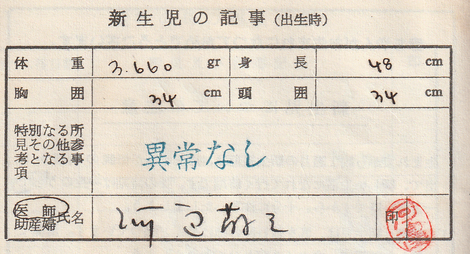 新生児の記事(出生時)
体重 3.660 gr 身長 48 cm
胸囲 34 cm 頭囲 34 cm
特別なる所見その他参考となる事項 異常なし
医師
助産婦 氏名 印